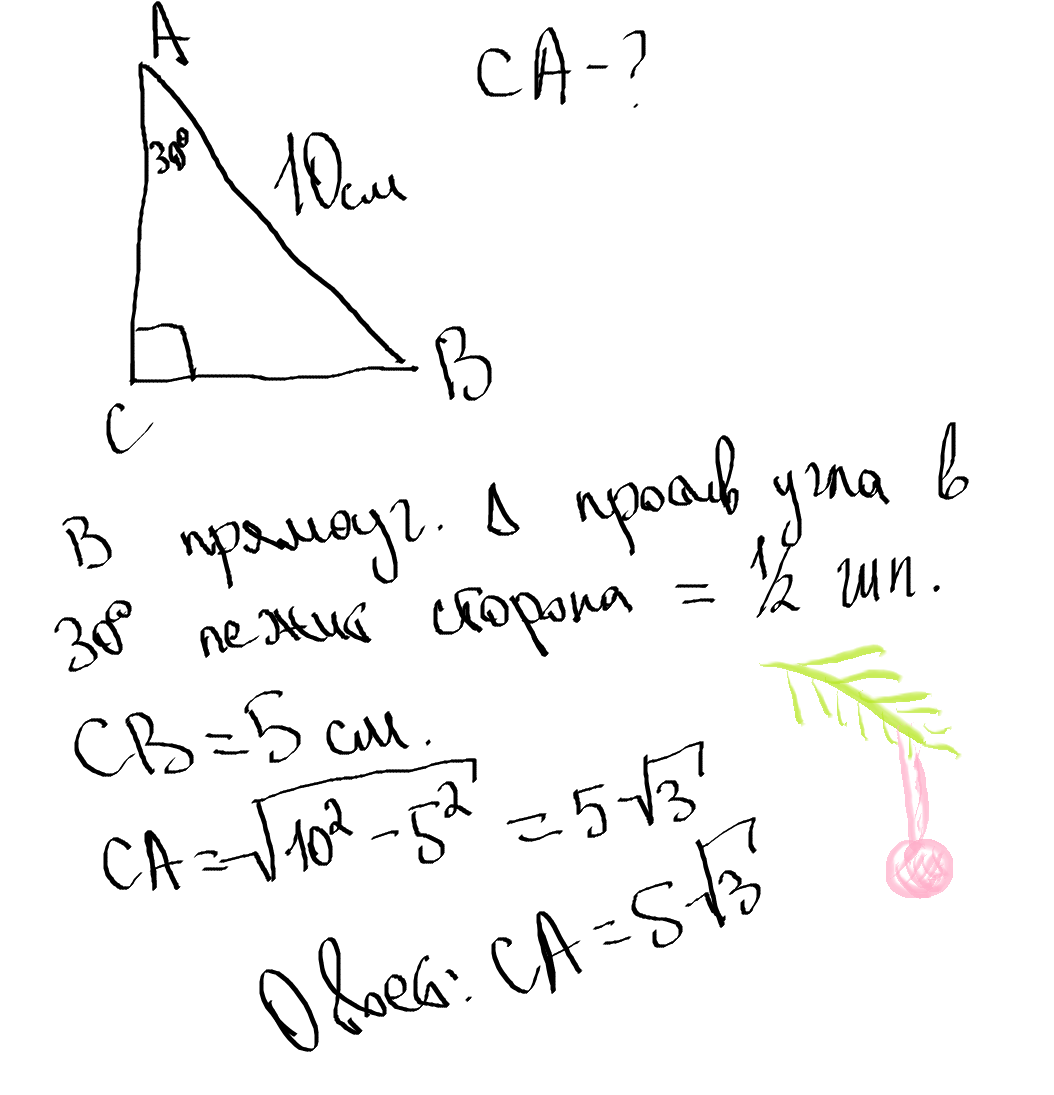 A
CA-?
30°
10см
B
C
В прямоуг. Δ против угла в
30° лежит сторона = 1/2 гип.
CB = 5 см.
CA = √(10² - 5²) = 5√3
Ответ: CA = 5√3